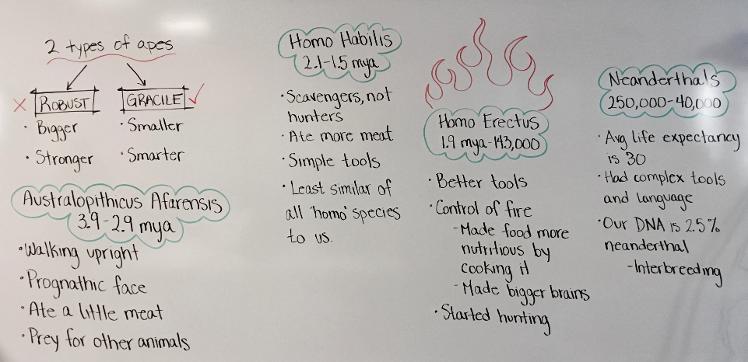 2 types of apes
ROBUST
GRACILE
• Bigger
• Stronger
• Smaller
• Smarter
Australopithicus Afarensis
3.9-2.9 mya
• Walking upright
• Prognathic face
• Ate a little meat
• Prey for other animals
Homo Habilis
2.1-1.5 mya
• Scavengers, not
hunters
• Ate more meat
• Simple tools
• Least similar of
all 'homo' species
to us.
Homo Erectus
1.9 mya-143,000
• Better tools
• Control of fire
- Made food more
nutritious by
cooking it
- Made bigger brains
• Started hunting
Neanderthals
250,000-40,000
• Avg life expectancy
is 30
• Had complex tools
and language
• Our DNA is 2.5%
neanderthal
- Interbreeding